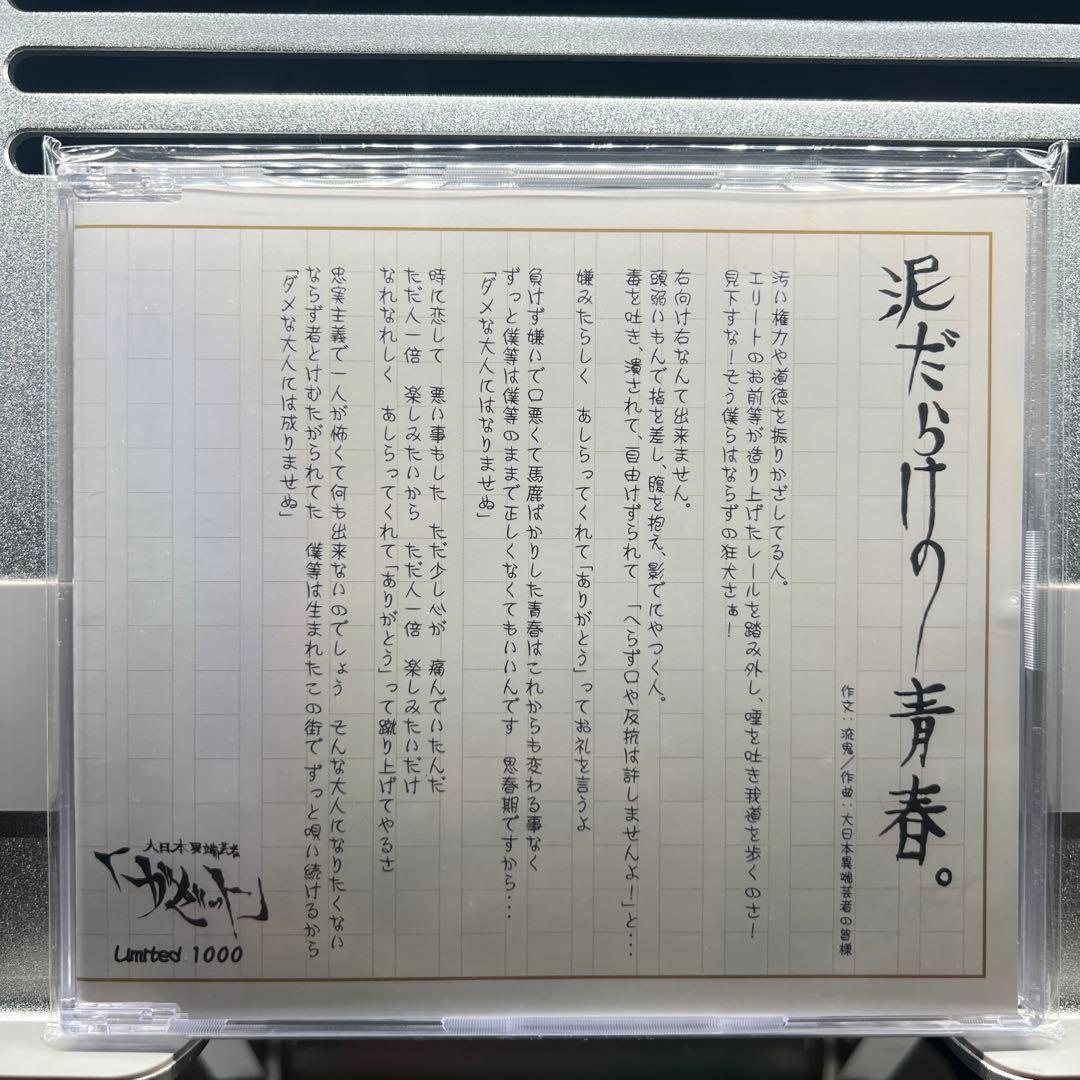 泥だらけの青春。
作文：流鬼／作曲：大日本異端芸者の皆様
汚い権力や道徳を振りかざしてる人。
エリートのお前等が造り上げたレールを踏み外し、唾を吐き我道を歩くのさ！
見下すな！そう僕らはならずの狂犬さぁ！
右向け右なんて出来ません。
頭弱いもんで指を差し、腹を抱え、影でにやつく人。
毒を吐き、潰されて、自由けずられて　「へらず口や反抗は許しませんよ！」と・・・
嫌みたらしく　あしらってくれて「ありがとう」ってお礼を言うよ
負けず嫌いで口悪くて馬鹿ばかりした青春はこれからも変わる事なく
ずっと僕等は僕等のままで正しくなくてもいいんです　思春期ですから・・・
「ダメな大人にはなりませぬ」
時に恋して　悪い事もした　ただ少し心が　痛んでいたんだ
ただ人一倍　楽しみたいから　ただ人一倍　楽しみたいだけ
なれなれしく　あしらってくれて「ありがとう」って蹴り上げてやるさ
忠実主義で一人が怖くて何も出来ないのでしょう　そんな大人になりたくない
ならず者とけむたがられてた　僕等は生まれたこの街でずっと唄い続けるから
「ダメな大人には成りませぬ」
大日本異端芸者
「ガゼット」
Limited 1000